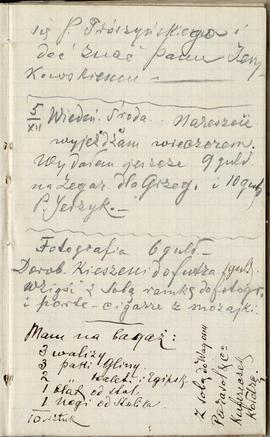 się P. Prószyńskiego i
dać znać Panu Jeny-
kowskiemu
5/XII Wiedeń. Środa. Nareszcie
wyjeżdżam wieczorem.
Wydałem jeszcze 9 guld
na zegar. dla Grzeg. i 10 guld
P. Jerzyk.
Fotografia 6 guld
Dorob. Kieszeni do futra 1 guld
wziąść z sobą ramkę do fotogr.
i porte-cigarre z mozajki.
Mam na bagaż:
3 walizy
3 paki Gliny
2
1
1 nogi od stolika
10 sztuk
Z sobą
Parasol
Kuferek
Kołdrę